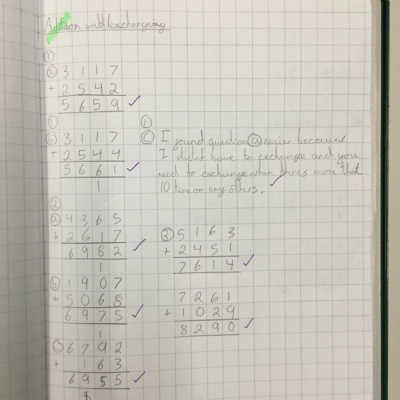 Addition with exchanging
①
ⓐ 3 1 1 7
+ 2 5 4 2
5 6 5 9
①
ⓑ 3 1 1 7
+ 2 5 4 4
5 6 6 1
1
①
ⓒ I found question ⓐ easier because
I didn't have to exchange and you
need to exchange when ones more that
10 tens or any others.
②
ⓐ 4 3 6 5
+ 2 6 1 7
6 9 8 2
1
ⓑ 1 9 0 7
+ 5 0 6 8
6 9 7 5
1
ⓒ 6 7 9 2
+ 1 6 3
6 9 5 5
1
ⓓ 5 1 6 3
+ 2 4 5 1
7 6 1 4
7 2 6 1
+ 1 0 2 9
8 2 9 0